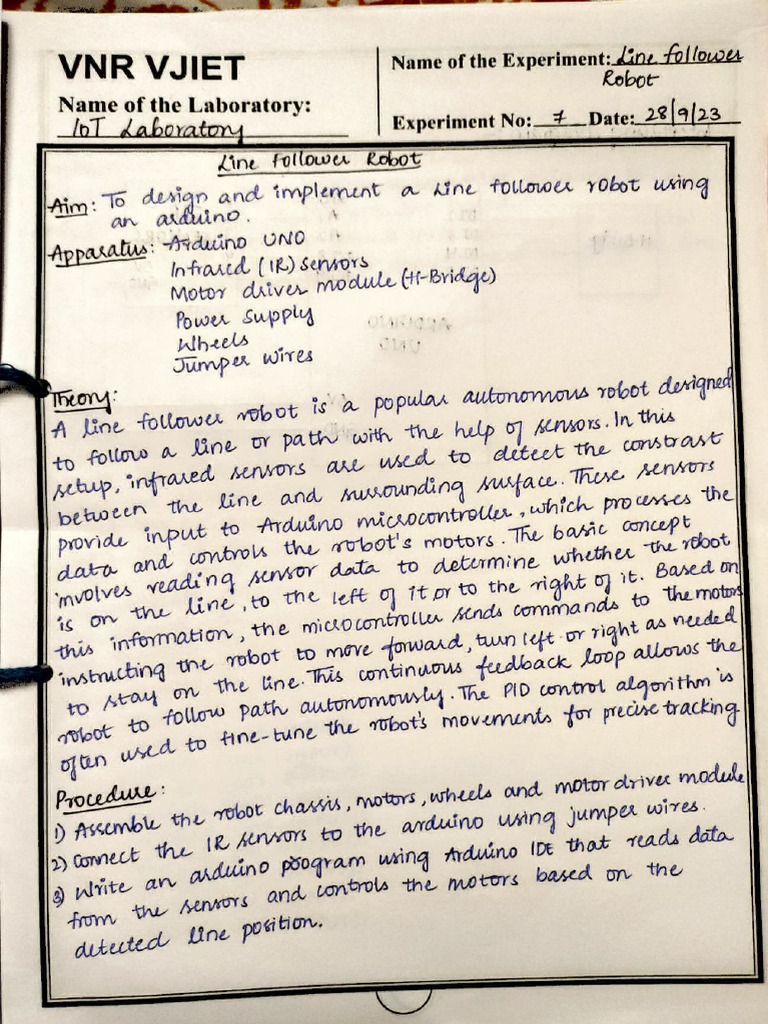 VNR VJIET
Name of the Laboratory:
IoT Laboratory
Name of the Experiment: Line follower
Robot
Experiment No: 7 Date: 28/9/23
Line Follower Robot
Aim: To design and implement a Line follower robot using
an arduino.
Apparatus: Arduino UNO
Infrared (IR) sensors
Motor driver module (H-Bridge)
Power Supply
Wheels
Jumper wires
Theory:
A line follower robot is a popular autonomous robot designed
to follow a line or path with the help of sensors. In this
setup, infrared sensors are used to detect the constrast
between the line and surrounding surface. These sensors
provide input to Arduino microcontroller, which processes the
data and controls the robot's motors. The basic concept
involves reading sensor data to determine whether the robot
is on the line, to the left of it or to the right of it. Based on
this information, the microcontroller sends commands to the motors
instructing the robot to move forward, turn left or right as needed
to stay on the line. This continuous feedback loop allows the
robot to follow path autonomously. The PID control algorithm is
often used to fine-tune the robot's movements for precise tracking
Procedure:
1) Assemble the robot chassis, motors, wheels and motor driver module
2) Connect the IR sensors to the arduino using jumper wires.
3) Write an arduino program using Arduino IDE that reads data
from the sensors and controls the motors based on the
detected line position.